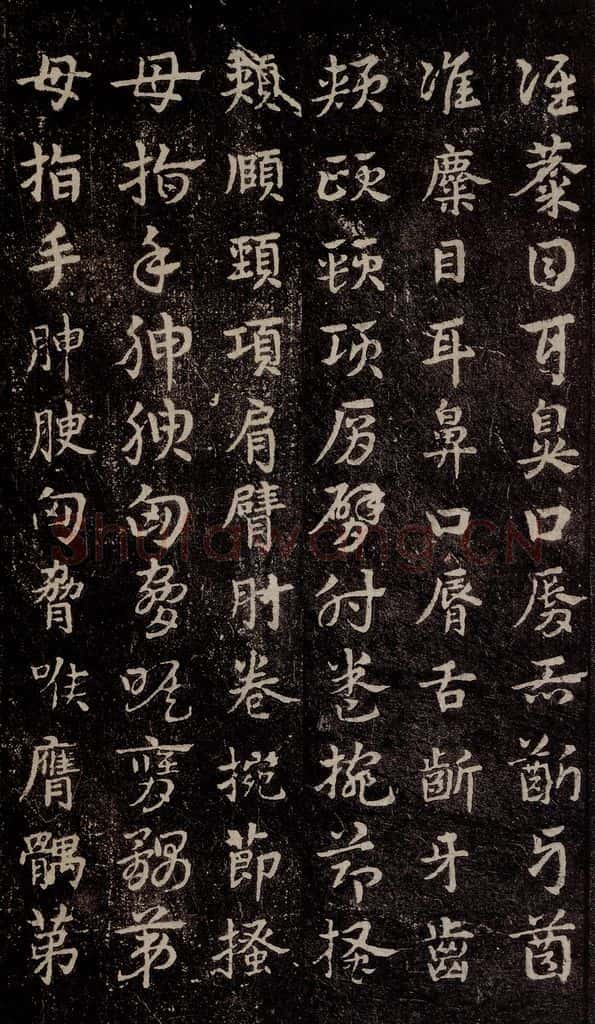 准麋目耳鼻口脣舌齗牙齒
准麋目耳鼻口脣舌齗牙齒
頰頤頸項肩臂肘卷捥節搔
頰頤頸項肩臂肘卷捥節搔
母指手胂腴匈脅喉膺髃苐
母指手胂腴匈脅喉膺髃苐
Shufawang.CN